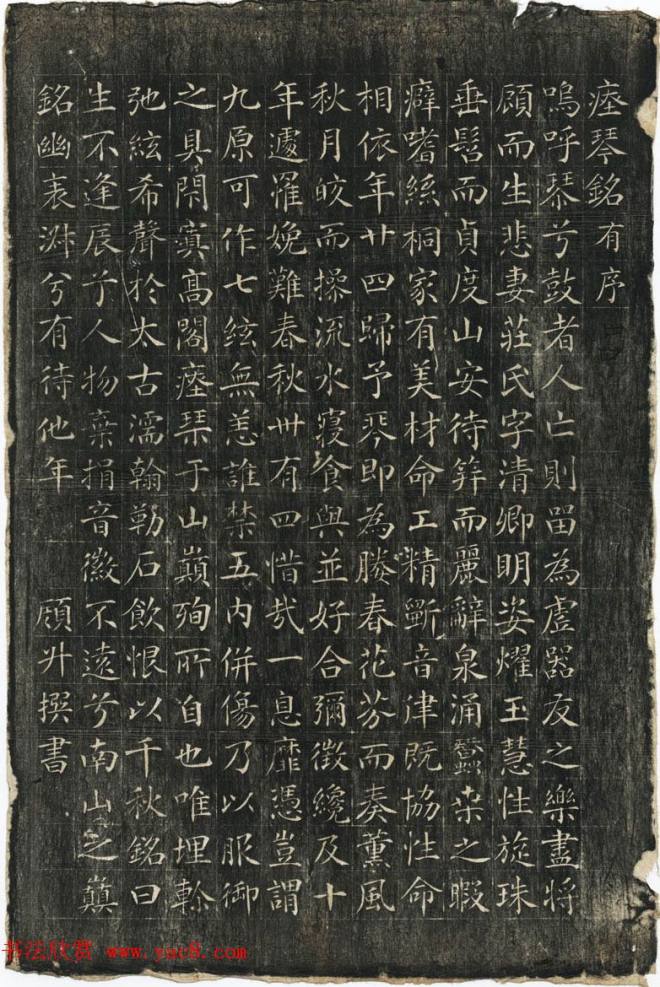 瘞琴銘有序
嗚呼琴兮鼓者人亡則畱為虛器友之樂盡將
顧而生悲妻莊氏字清卿明姿燿玉慧性旋珠
垂髫而貞度山安待筓而麗辭泉涌蠶桒之暇
癖嗜絲桐家有美材命工精斵音律既協性命
相依年廿四歸予琴即為媵春花芬而奏薰風
秋月皎而操流水寢食與並好合彌徵纔及十
年遽罹娩難春秋卅有四惜哉一息靡憑豈謂
九原可作七絃無恙誰禁五內併傷乃以服御
之具閑寘高閣瘞琹于山巔殉所自也唯埋軫
弛絃希聲於太古濡翰勒石飲恨以千秋銘曰
生不逢辰兮人物棄捐音徽不遠兮南山之巔
銘幽表淑兮有待他年 顧升撰書
书法欣赏 www.yac8.com